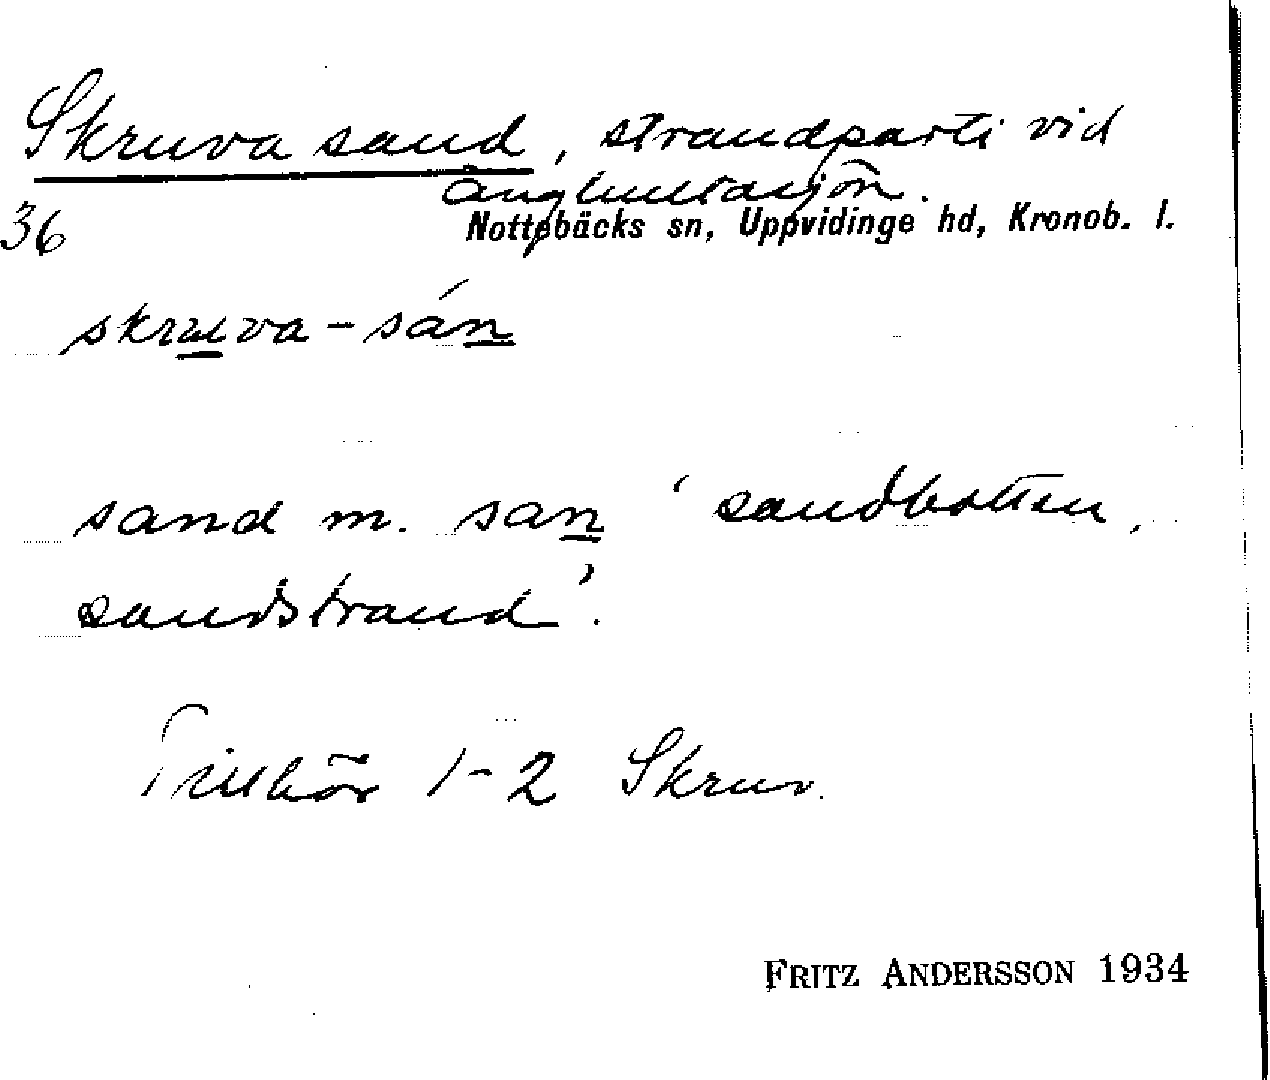 Skruva sand, strandparti vid
Änghultasjön.
36 Nottebäcks sn, Uppvidinge hd, Kronob. l.
skruva-sán
sand m. san ‘sandbotten,
sandstrand’.
Tillhör 1-2 Skruv.
FRITZ ANDERSSON 1934